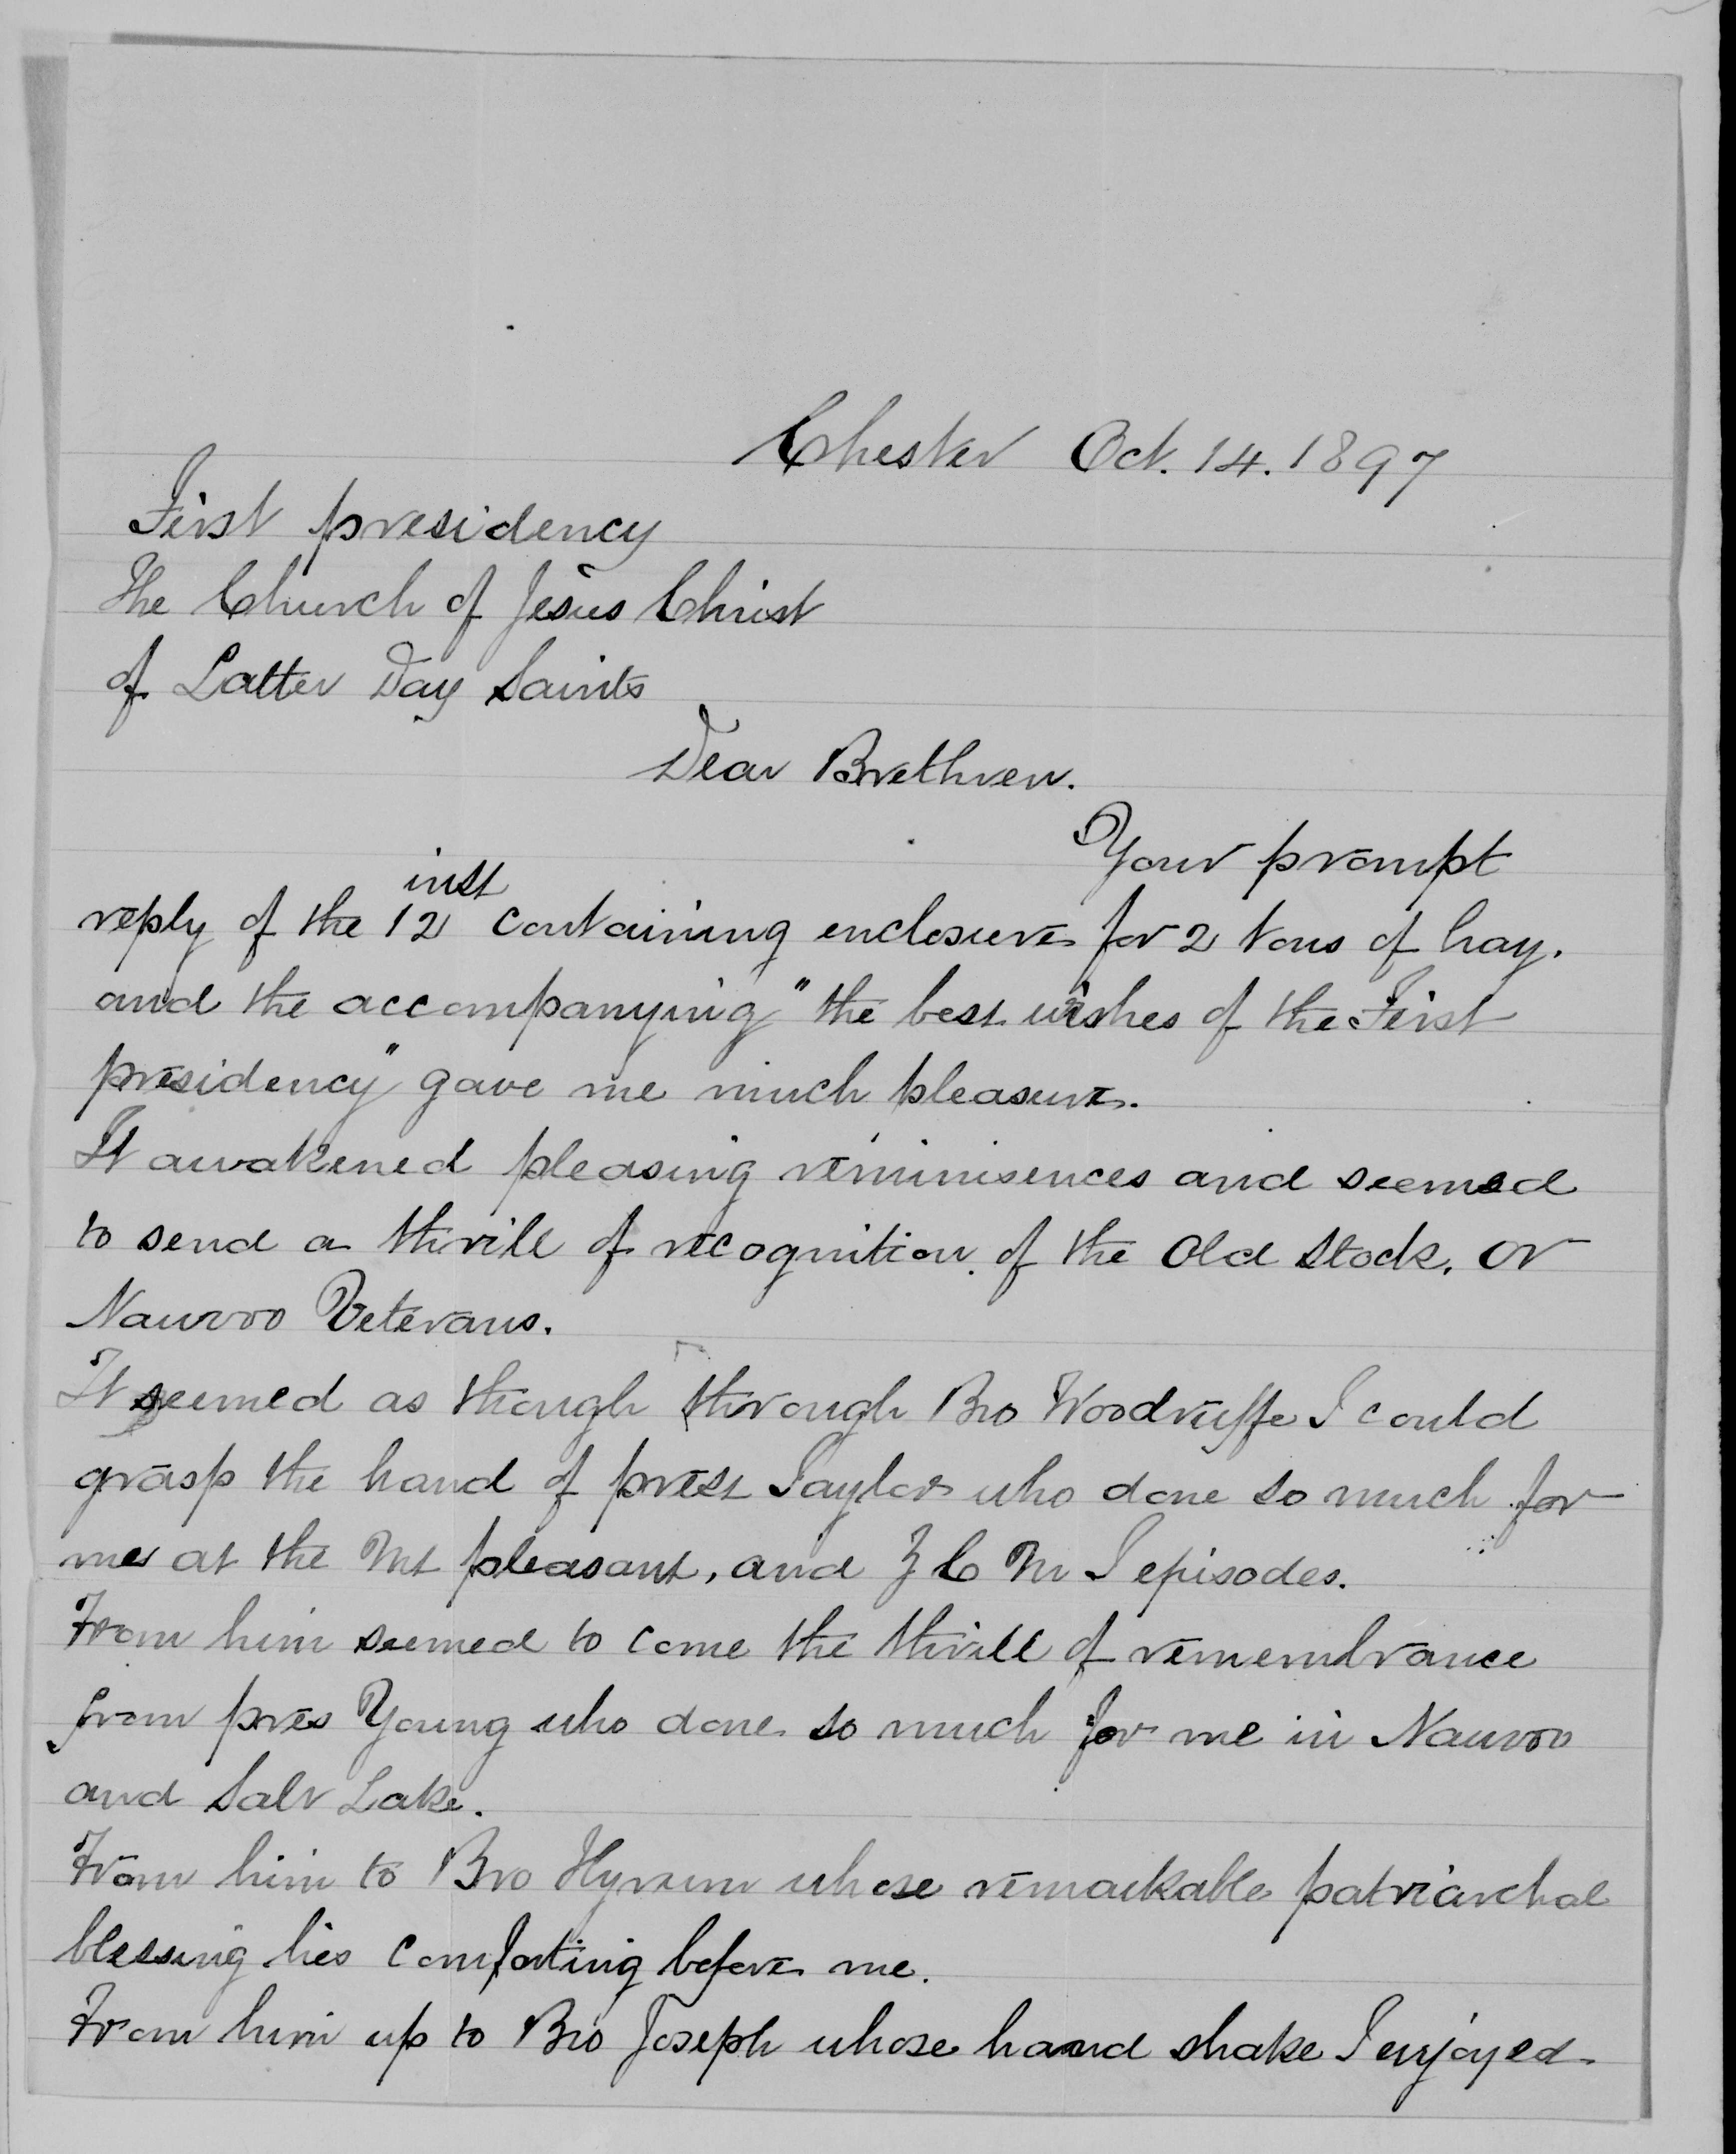 Chester Oct. 14. 1897
First presidency
The Church of Jesus Christ
of Latter Day Saints
Dear Brethren.
Your prompt
inst
reply of the 12 containing enclosure for 2 tons of hay.
and the accompanying "the best wishes of the First
presidency" gave me much pleasure.
It awakened pleasing reminisences and seemed
to send a thrill of recognition of the Old Stock. or
Nauvoo Veterans.
It seemed as though through Bro Woodruffe I could
grasp the hand of prest Taylor who done so much for
me at the Mt pleasant, and Z C M I episodes.
From him seemed to come the thrill of remembrance
from pres Young who done so much for me in Nauvoo
and Salt Lake.
From him to Bro Hyrum whose remarkable patriarchal
blessing lies comforting before me.
From him up to Bro Joseph whose hand shake I enjoyed